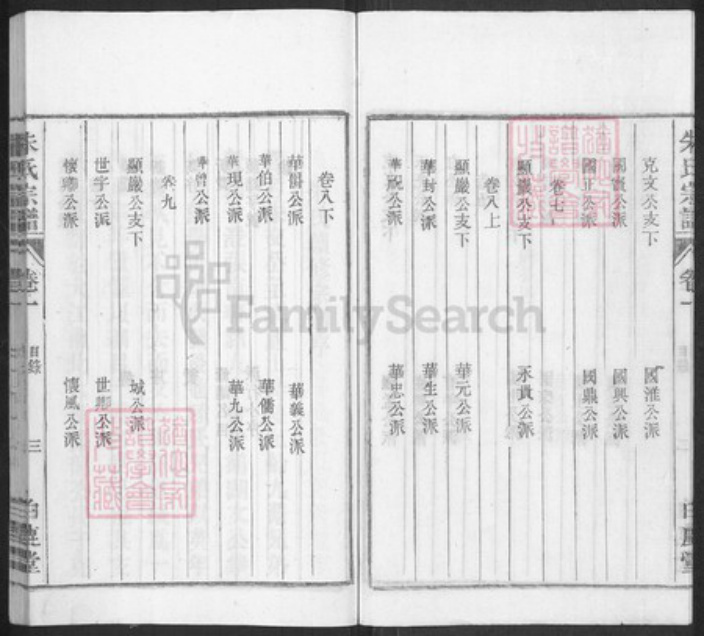 朱氏宗譜
卷一
克文公支下 國淮公派
國賓公派 國興公派
國正公派 國鼎公派
卷七
顯嚴公支下 永貴公派
卷八上
顯嚴公支下 華元公派
華封公派 華生公派
華祝公派 華忠公派
卷八下
華儕公派 華義公派
華伯公派 華儒公派
華現公派 華九公派
華曾公派
卷九
顯嚴公支下 城公派
世宇公派 世公派
懷公派 懷風公派
朱氏宗譜
卷一
目錄
三
白鹿堂
FamilySearch